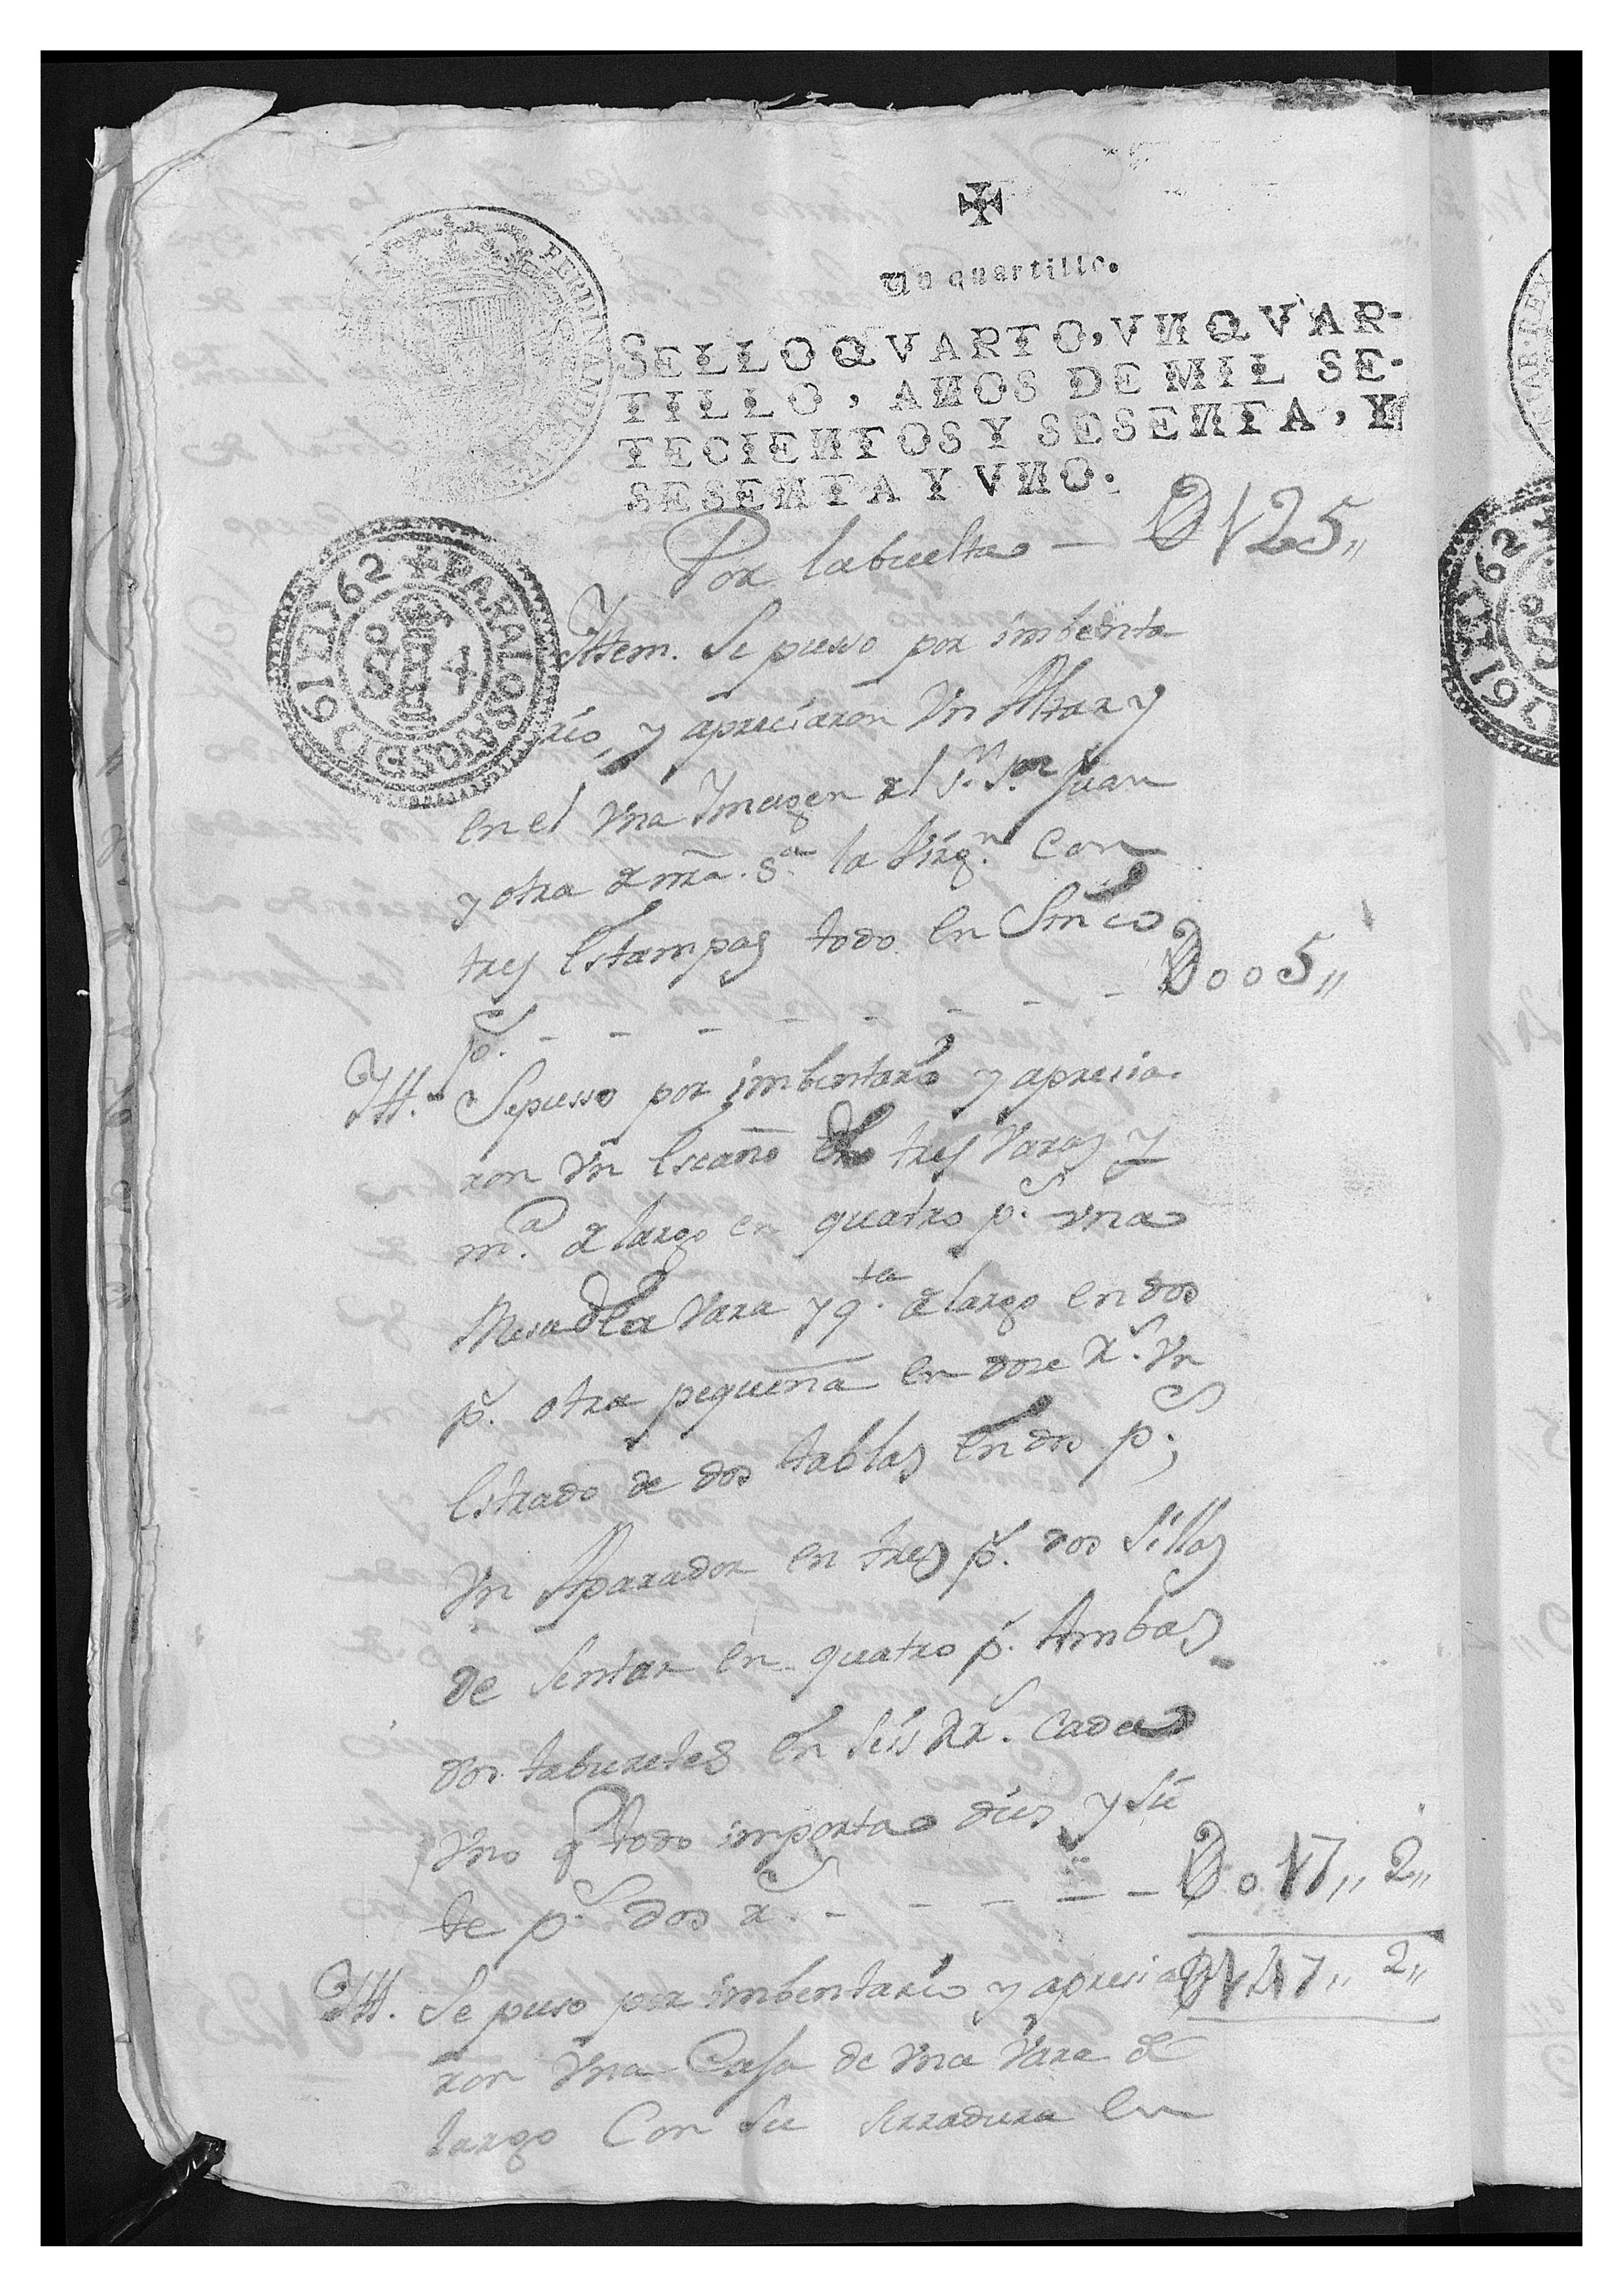 Un quartillo.
SELLO QVARTO, VN QVAR-
TILLO, AÑOS DE MIL SE-
TECIENTOS Y SESENTA, Y
SESENTA Y VNO.
PARA LOS AÑOS DE 1761 Y 1762
S 4
Por labuelta — D125,,
Yttem. Se pusso por imbenta
rio, y apreciaron Vn Altar y
en el Vna Ymagen del Sr. Sn. Juan
y otra de nra. Sa. la Virgn. Con
tres Estampas todo en Sinco
ps. - - - - - - - D005,,
Ytt. Sepusso por imbentario y apresia-
ron Vn Escaño de tres Varas y
ma. de largo en quatro ps. Vna
Mesa de a Vara y qta. de largo en dos
ps. otra pequeña en dose rs. Vn
Estrado de dos tablas en dos ps.,
Vn Aparador en tres ps. dos Sillas
de Sentar en quatro ps. Ambas
dos taburetes en Seis Rs. Cada
Vno q todo importa dies y Sie
te ps. dos rs. - - - - - D017,, 2,,
Ytt. Se puso por imbentario y apresia D147,, 2,,
ron Vna Caja de Vna Vara de
largo Con Su Serradura En